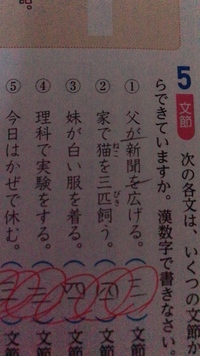 5
文節
次の各文は、いくつの文節か
らできていますか。漢数字で書きなさい
① 父が新聞を広げる。( 三 ) 文節
② 家で猫を三匹飼う。( 四 ) 文節
③ 妹が白い服を着る。( 四 ) 文節
④ 理科で実験をする。( 三 ) 文節
⑤ 今日はかぜで休む。( 三 ) 文節